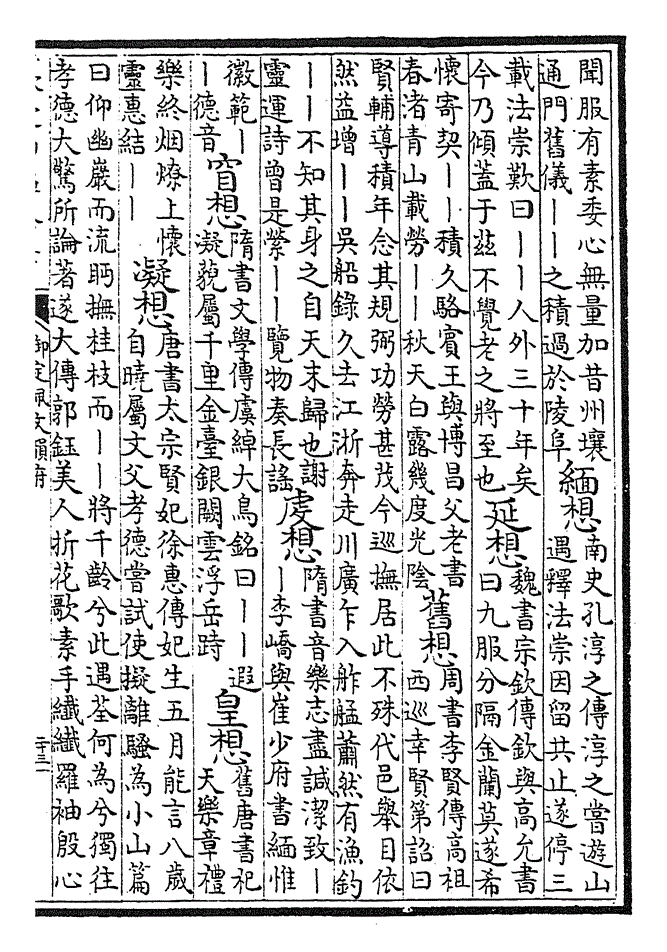 聞服有素委心無量加昔州壤
通門舊儀丨丨之積過於陵阜
緬想
南史孔淳之傳淳之嘗遊山
遇釋法崇因留共止遂停三
載法崇歎曰丨丨人外三十年矣
今乃傾蓋于茲不覺老之將至也
延想
魏書宗欽傳欽與高允書
曰九服分隔金蘭莫遂希
懷寄契丨丨積久駱賓王與博昌父老書
春渚青山載勞丨丨秋天白露幾度光陰
舊想
周書李賢傳高祖
西巡幸賢第詔曰
賢輔導積年念其規弼功勞甚茂今巡撫居此不殊代邑舉目依
然益增丨丨吳船錄久去江浙奔走川廣乍入舴艋蕭然有漁釣
丨丨不知其身之自天末歸也謝
靈運詩曾是縈丨丨覽物奏長謠
虔想
隋書音樂志盡誠潔致丨
丨李嶠與崔少府書緬惟
徽範丨
丨德音
窅想
隋書文學傳虞綽大鳥銘曰丨丨遐
凝藐屬千里金臺銀闕雲浮岳峙
皇想
舊唐書祀
天樂章禮
樂終烟燎上懷
靈惠結丨丨
凝想
唐書太宗賢妃徐惠傳妃生五月能言八歲
自曉屬文父孝德嘗試使擬離騷為小山篇
曰仰幽巖而流眄撫桂枝而丨丨將千齡兮此遇荃何為兮獨往
孝德大驚所論著遂大傳郭鈺美人折花歌素手纖纖羅袖殷心
御定佩文韻府